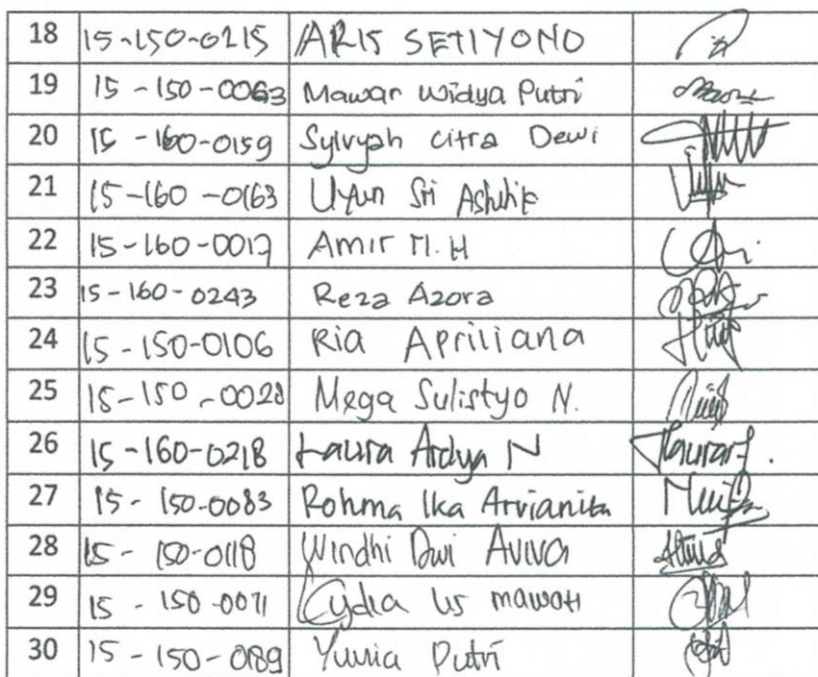 18 15-150-0215 ARIS SETIYONO
19 15-150-0063 Mawar Widya Putri
20 15-160-0159 Sylvyah Citra Dewi
21 15-160-0163 Uyun Sri
22 15-160-0017 Amir M.H
23 15-160-0243 Reza Azora
24 15-150-0106 Ria Apriliana
25 15-150-0028 Mega Sulistyo N.
26 15-160-0218 Laura Ardya N
27 15-150-0083 Rohma Ika Arvianita
28 15-150-0118 Windhi Dwi Aviva
29 15-150-0071 Lydia
30 15-150-0189 Putri